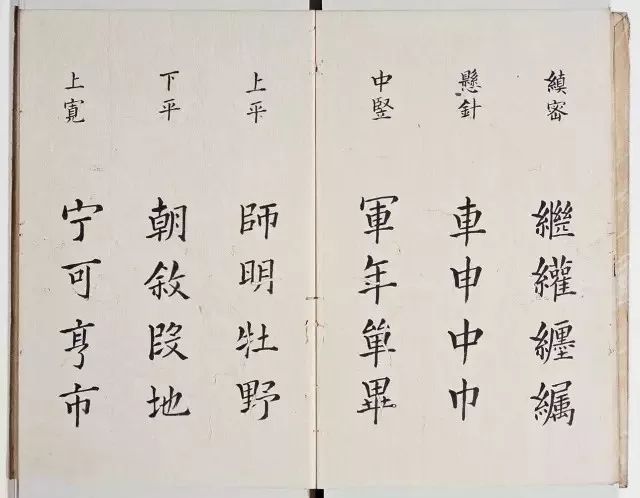 縝密
繼纏
懸針
車申中巾
中竪
軍年單畢
上平
師明牡野
下平
朝敘段地
上寛
宁可亨市